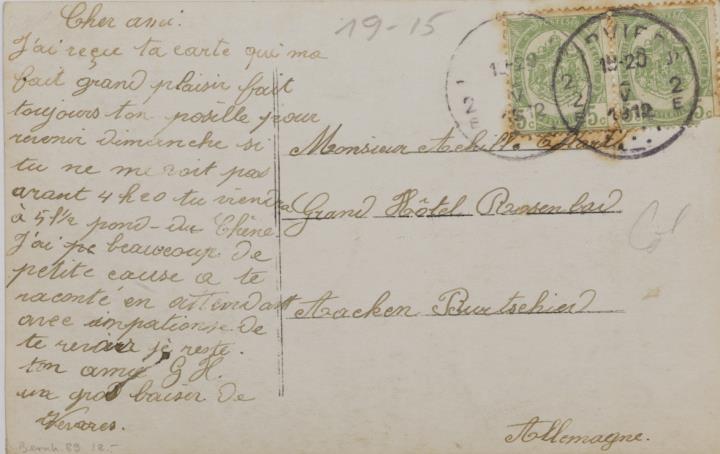 Cher ami.
J'ai reçue ta carte qui ma
fait grand plaisir fait
toujours ton posille pour
revenir dimanche si
tu ne me voit pas
avant 4 h20 tu viendra
à 5 1/2 pond-du Chêne
J'ai pe beaucoup de
petite cause a te
raconté en attendant
avec impationse de
te revoir je reste.
ton amie G H.
un gros baiser de
19-15
5c 5c
19-20
V
1912
2E
Monsieur Achille
Grand Hôtel Rosenbad
Aachen Burtscheid
Allemagne.
Col
Bernh. 89 12.-